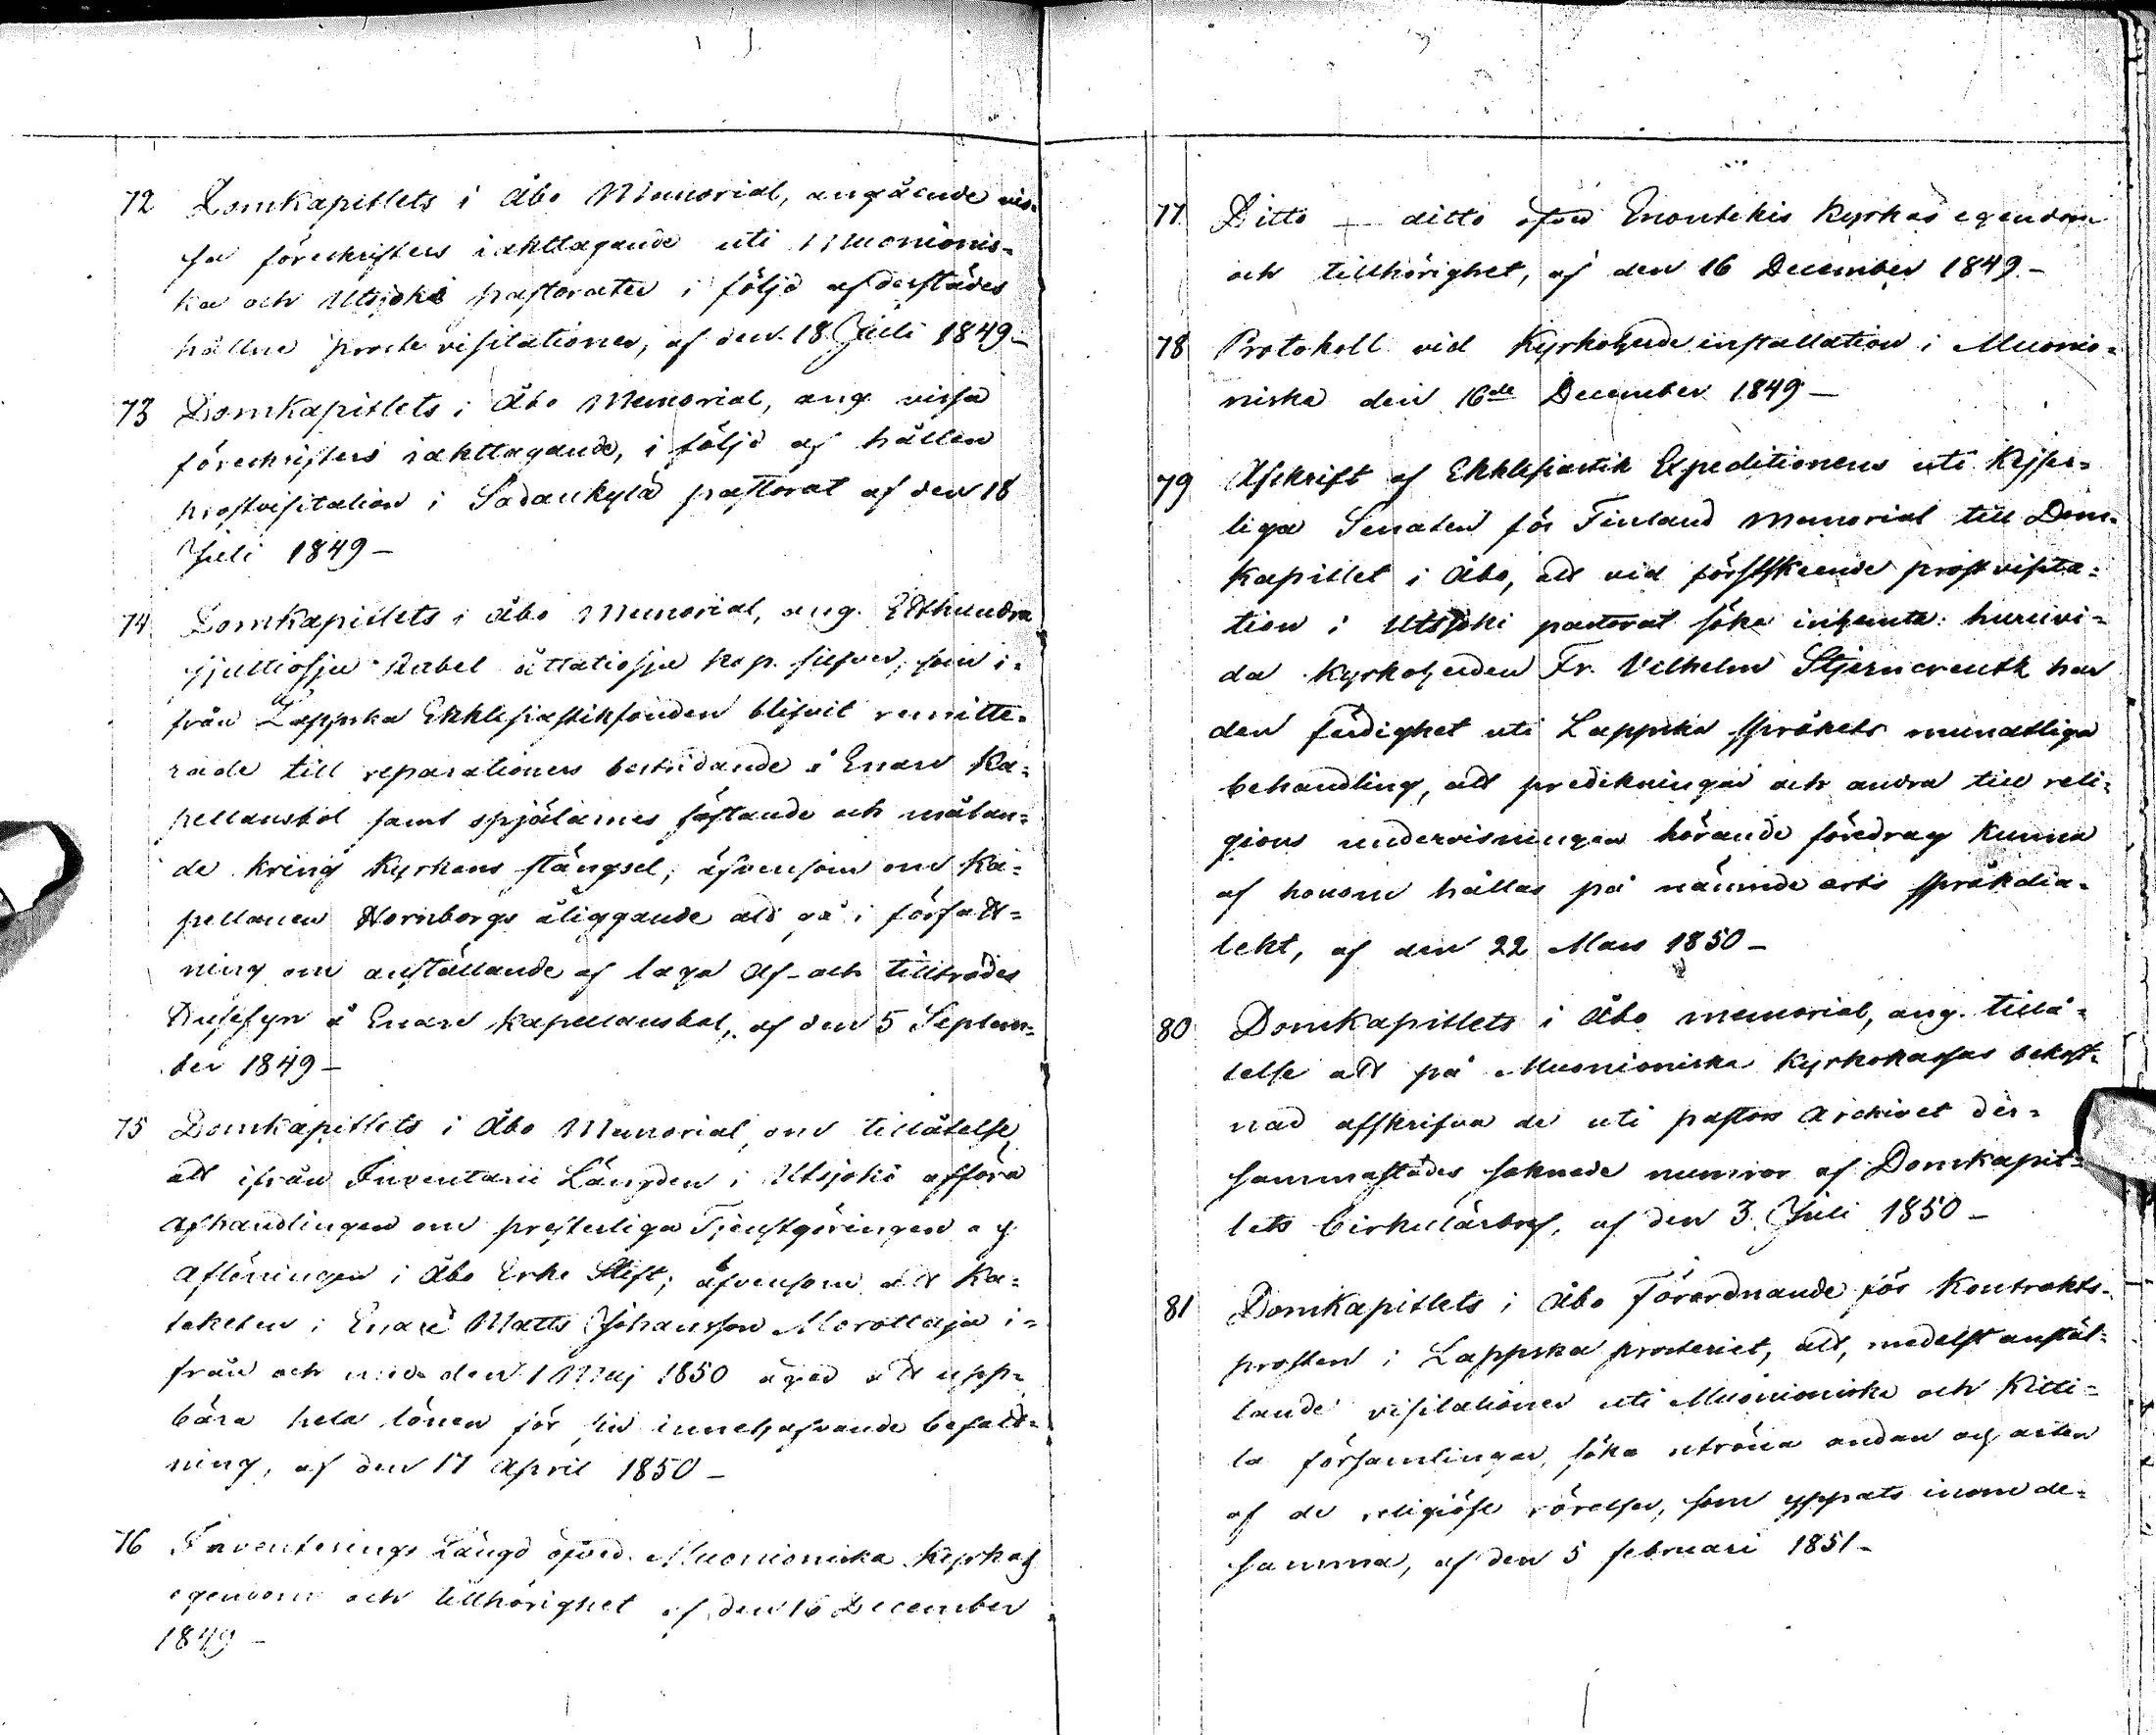 72 Domkapitlets i Åbo Memorial, angående vis-
sa föreskrifters iakttagande uti Muonionis-
ka och Utsjoki pastorater i följd af derstädes
hållne prostevisitationer, af den 18 Juli 1849 –
73 Domkapitlets i Åbo Memorial, ang. vissa
föreskrifters iakttagande, i följd af hållen
prostvisitation i Sodankylä pastorat af den 18
Juli 1849 –
74 Domkapitlets i Åbo Memorial, ang. Etthundra
sjuttiosju Rubel åttatiosju kop. silfver, som i-
från Lappska Ekklesiastikfonden blifvit remitte-
rade till reparationers bestridande å Enare Ka-
pellansbol samt spjälarnes fästande och målan-
de kring Kyrkans stängsel; äfvensom om Ka-
pellanen Hornborgs åliggande att gå i författ-
ning om anställande af laga Af- och tillträdes
Husesyn å Enare Kapellansbol, af den 5 Septem-
ber 1849 –
75 Domkapitlets i Åbo Memorial, om tillåtelse
att ifrån Inventarii Längden i Utsjoki afföra
Afhandlingen om presterliga Tjenstgöringen och
Aflöningen i Åbo Erke Stift; äfvensom att Ka-
teketen i Enare Matts Johansson Morottaja i-
från och med den 1 Maj 1850 äger att upp-
bära hela lönen för sin innehafvande befatt-
ning, af den 17 April 1850 –
76 Inventerings Längd öfver Muonioniska Kyrkas
egendom och tillhörighet af den 16 December
1849 –
77 Ditto – ditto öfver Enontekis Kyrkas egendom
och tillhörighet, af den 16 December 1849 –
78 Protokoll vid Kyrkoherde installation i Muonio-
niska den 16de December 1849 –
79 Afskrift af Ekklesiastik Expeditionens uti Kejser-
liga Senaten för Finland Memorial till Dom-
kapitlet i Åbo, att vid förstskeende prostvisita-
tion i Utsjoki pastorat söka inhemta: huruvi-
da Kyrkoherden Fr. Vilhelm Stjerncreutz har
den färdighet uti Lappska språkets muntliga
behandling, att predikningar och andra till reli-
gions undervisningen hörande föredrag kunna
af honom hållas på nämnde orts språkdia-
lekt, af den 22 Mars 1850 –
80 Domkapitlets i Åbo memorial, ang. tillå-
telse att på Muonioniska Kyrkokassas bekost-
nad affskrifva de uti pastors Archivet der-
sammastädes saknade numror af Domkapit-
lets Cirkulärbref, af den 3 Juli 1850 –
81 Domkapitlets i Åbo Förordnande för Kontrakts-
prosten i Lappska prosteriet, att, medelst anstäl-
lande visitationer uti Muonioniska och Kitti-
la församlingar, söka utröna andan och arten
af de religiöse rörelser, som yppats inom de-
samma, af den 5 februari 1851 –